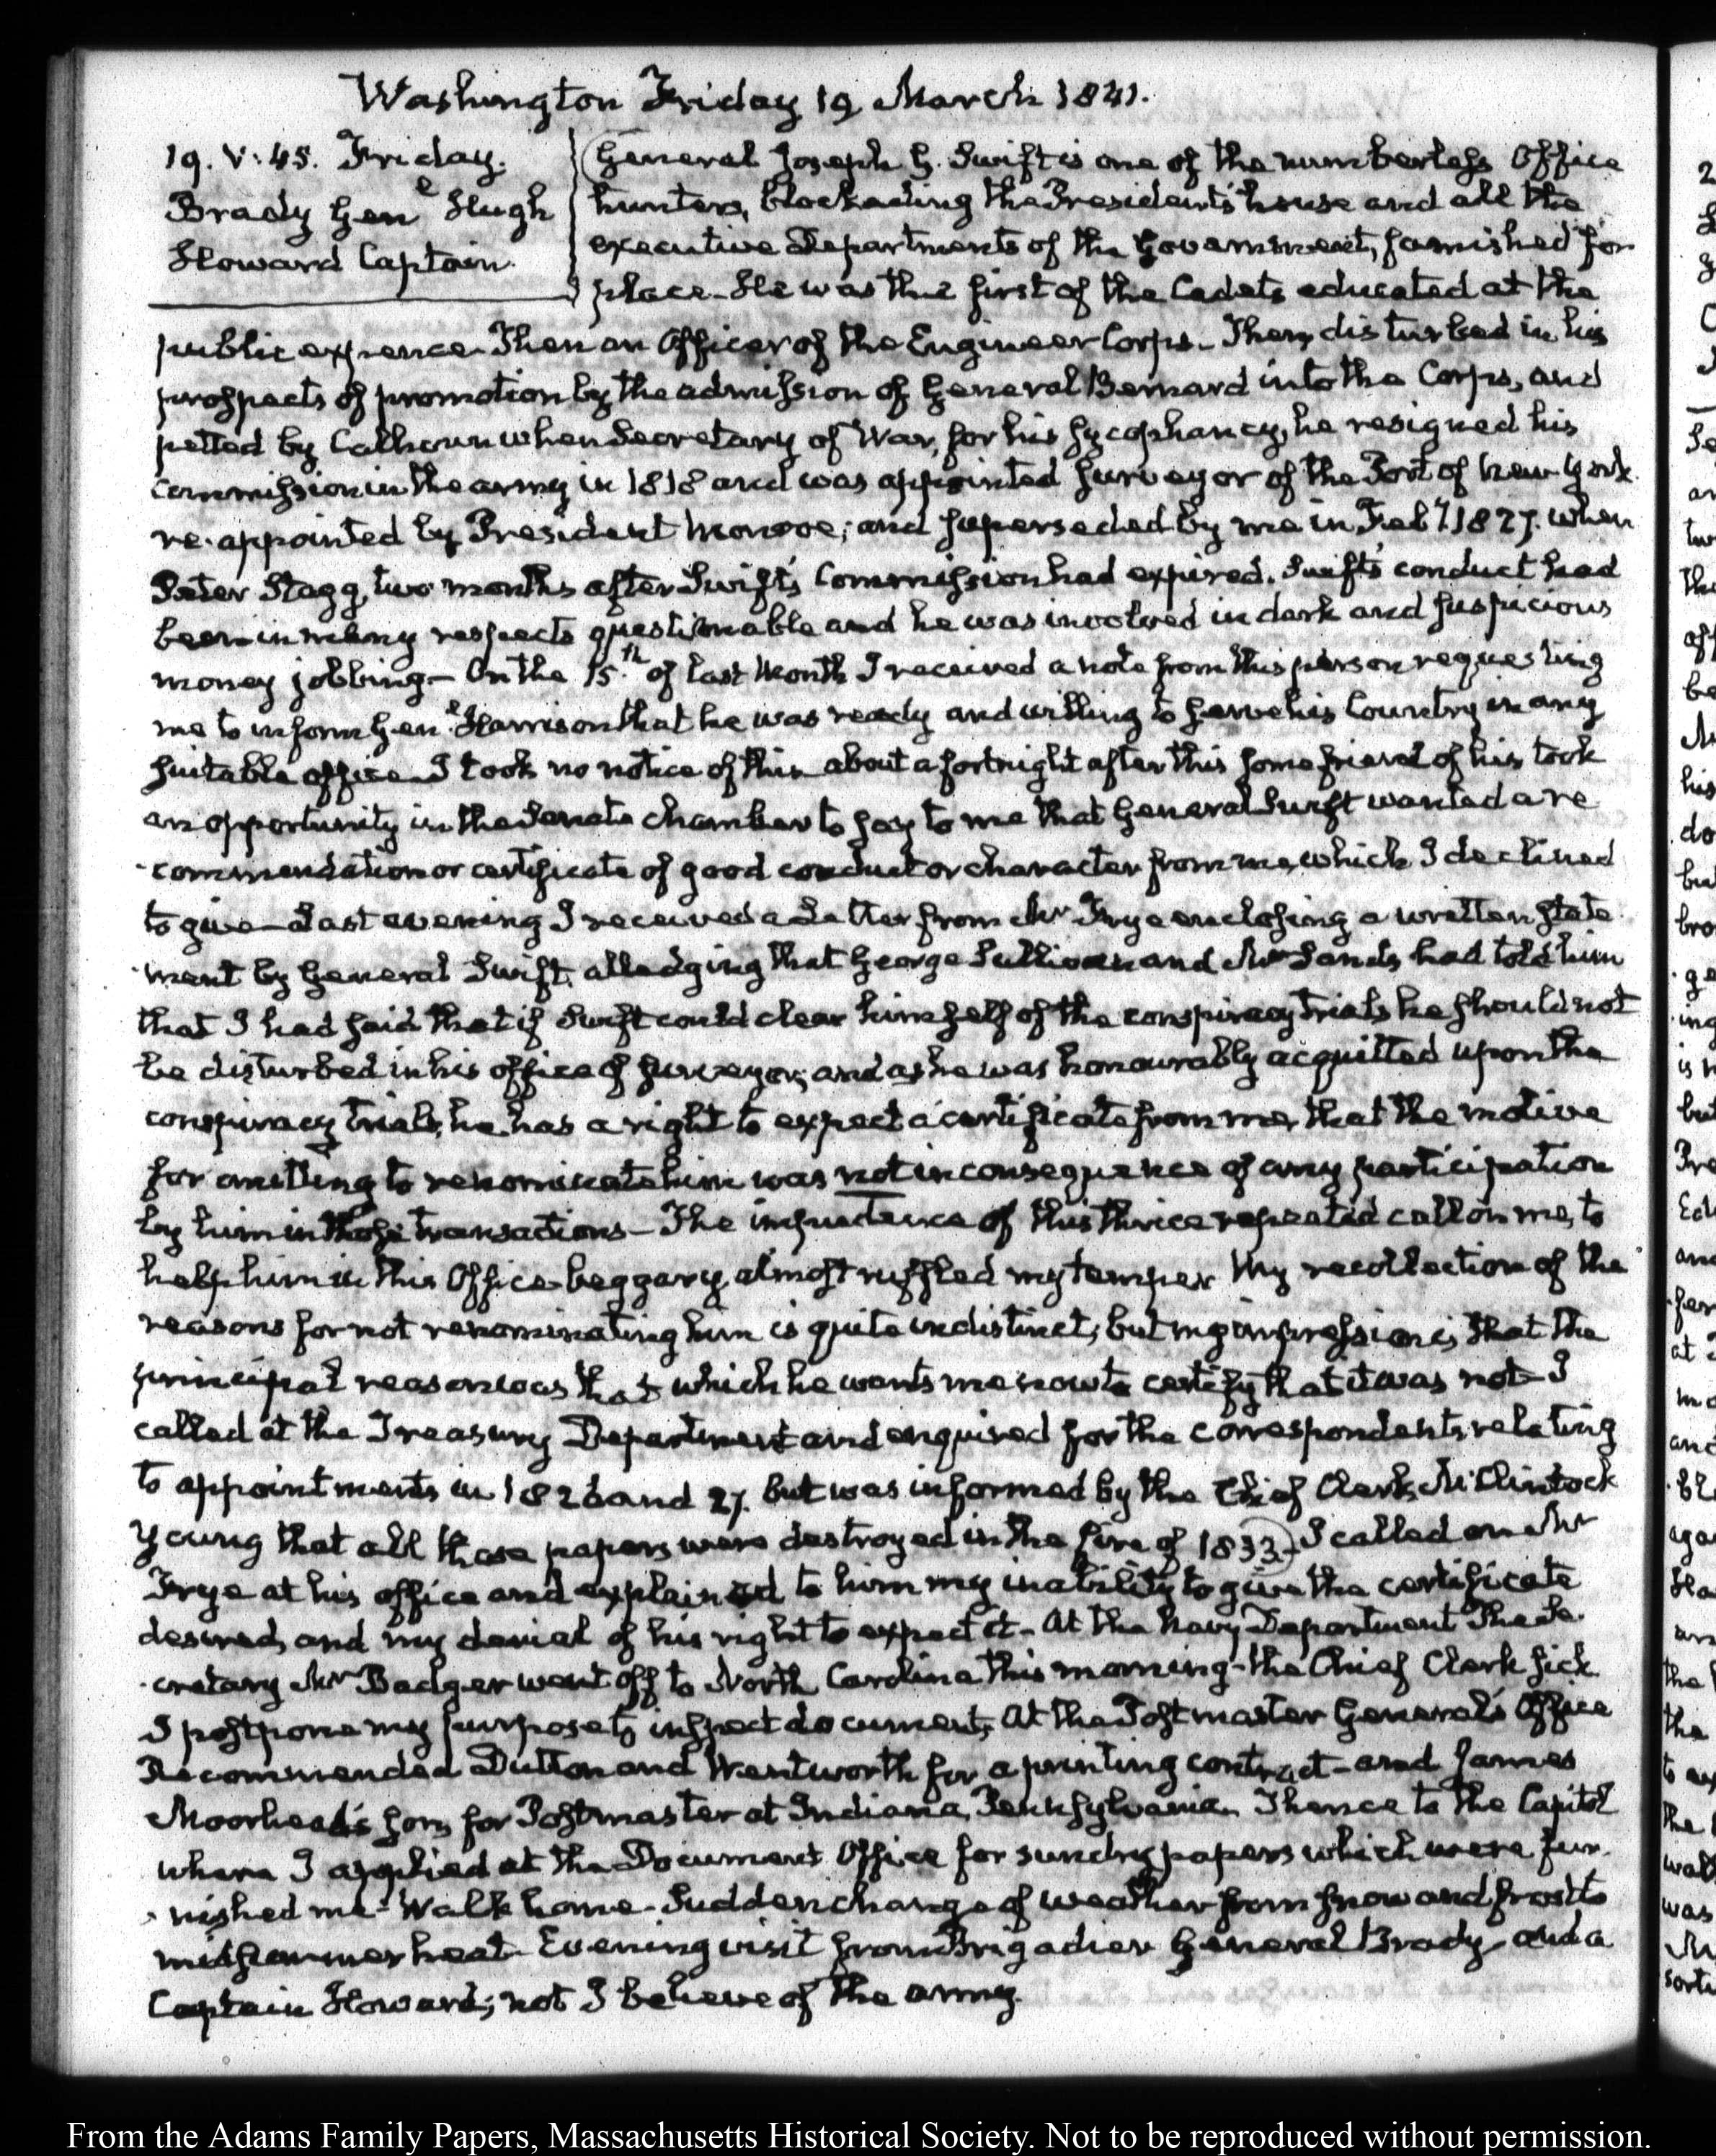 Washington Friday 19 March 1841.
19. V:45. Friday.
Brady Gen.l Hugh
Howard Captain.
General Joseph G. Swift is one of the numberless Office
hunters, blockading the President's house and all the
executive Departments of the Government, famished for
place. He was the first of the Cadets educated at the
public expence. Then an Officer of the Engineer Corps. Then, disturbed in his
prospects of promotion by the admission of General Bernard into the Corps, and
petted by Calhoun when Secretary of War, for his sycophancy, he resigned his
commission in the army in 1818 and was appointed Surveyor of the Port of New-York
re-appointed by President Monroe; and superseded by me in Feb.y 1827. when
Peter Stagg, two months after Swift's Commission had expired. Swift's conduct had
been in many respects questionable and he was involved in dark and suspicious
money jobbing— On the 15.th of last Month I received a note from this person requesting
me to inform Gen.l Harrison that he was ready and willing to serve his Country in any
suitable office. I took no notice of this. about a fortnight after this some friend of his took
an opportunity in the Senate chamber to say to me that General Swift wanted a re
-commendation or certificate of good conduct or character from me, which I declined
to give—Last evening I received a Letter from Mr Frye enclosing a written state
-ment by General Swift, alledging that George Sullivan and Mr Sands had told him
that I had said that if Swift could clear himself of the conspiracy trials he should not
be disturbed in his office of Surveyor; and as he was honourably acquitted upon the
conspiracy trials, he has a right to expect a certificate from me, that the motive
for omitting to renominate him was not in consequence of any participation
by him in those transactions— The impudence of this thrice repeated call on me, to
help him in this Office-beggary, almost ruffled my temper. My recollection of the
reasons for not renominating him is quite indistinct; but my impression is, that the
principal reason was that which he wants me now to certify that it was not— I
called at the Treasury Department and enquired for the correspondents, relating
to appointments in 1826 and 27. but was informed by the Chief Clerk, McClintock
Young that all those papers were destroyed in the fire of 1833— I called on Mr
Frye at his office and explained to him my inability to give the certificate
desired, and my denial of his right to expect it— At the Navy Department The Se-
-cretary Mr Badger went off to North Carolina this morning—the Chief Clerk sick
I postpone my purpose to inspect documents, At the Postmaster General's Office
Recommended Dutton and Wentworth for a printing contract—and James
Moorhead's son, for Postmaster at Indiana, Pennsylvania. Thence to the Capitol
where I applied at the Document Office for sundry papers which were fur-
-nished me- Walk home. Sudden change of weather from snow and frost to
midsummer heat. Evening visit from Brigadier General Brady and a
Captain Howard; not I believe of the army.
From the Adams Family Papers, Massachusetts Historical Society. Not to be reproduced without permission.